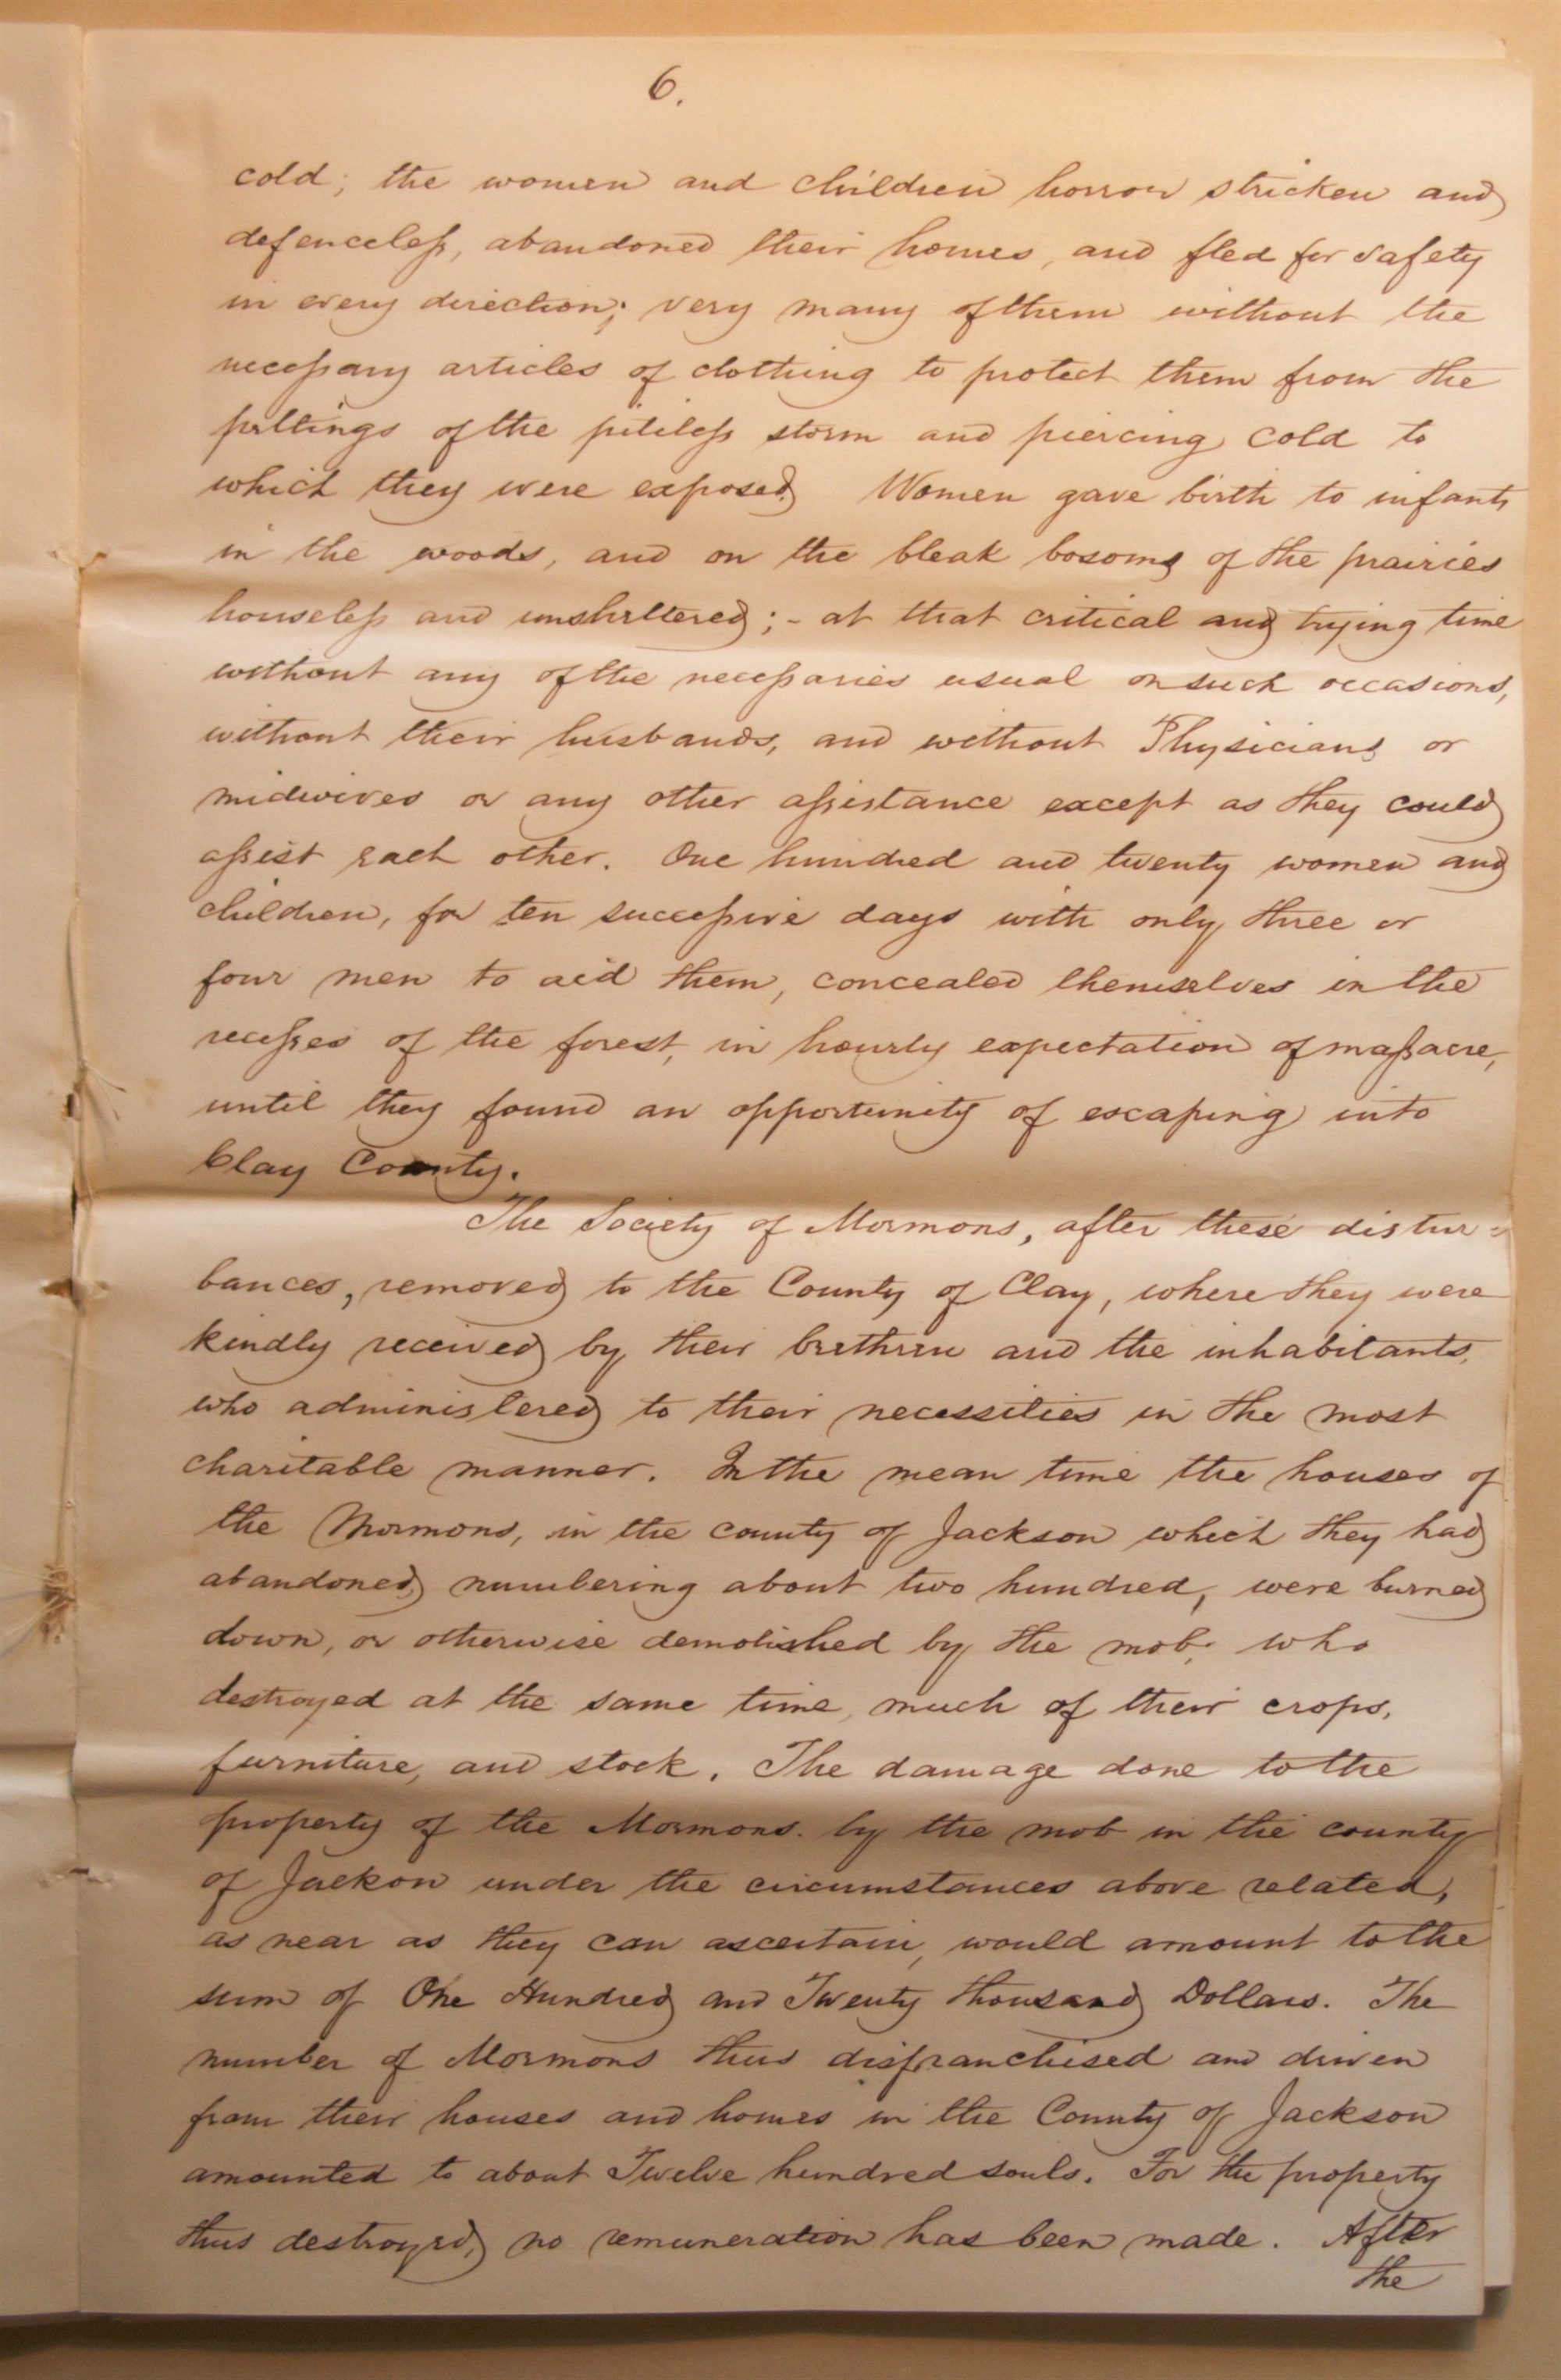 6.
cold; the women and children horror stricken and
defenceless, abandoned their homes, and fled for safety
in every direction; very many of them without the
necessary articles of clothing to protect them from the
peltings of the pitiless storm and piercing cold to
which they were exposed. Women gave birth to infants
in the woods, and on the bleak bosoms of the prairies
houseless and unsheltered; - at that critical and trying time
without any of the necessaries usual on such occasions,
without their husbands, and without Physicians or
midwives or any other assistance except as they could
assist each other. One hundred and twenty women and
children, for ten successive days with only three or
four men to aid them, concealed themselves in the
recesses of the forest, in hourly expectation of massacre,
until they found an opportunity of escaping into
Clay County.
The Society of Mormons, after these distur=
bances, removed to the County of Clay, where they were
kindly received by their brethren and the inhabitants,
who administered to their necessities in the most
charitable manner. In the mean time the houses of
the Mormons, in the county of Jackson which they had
abandoned, numbering about two hundred, were burned
down, or otherwise demolished by the mob; who
destroyed at the same time, much of their crops,
furniture, and stock. The damage done to the
property of the Mormons. by the mob in the county
of Jackon under the circumstances above related,
as near as they can ascertain, would amount to the
sum of One Hundred and Twenty thousand Dollars. The
number of Mormons thus disfranchised and driven
from their houses and homes in the County of Jackson
amounted to about Twelve hundred souls. For the property
thus destroyed, no remuneration has been made. After
the